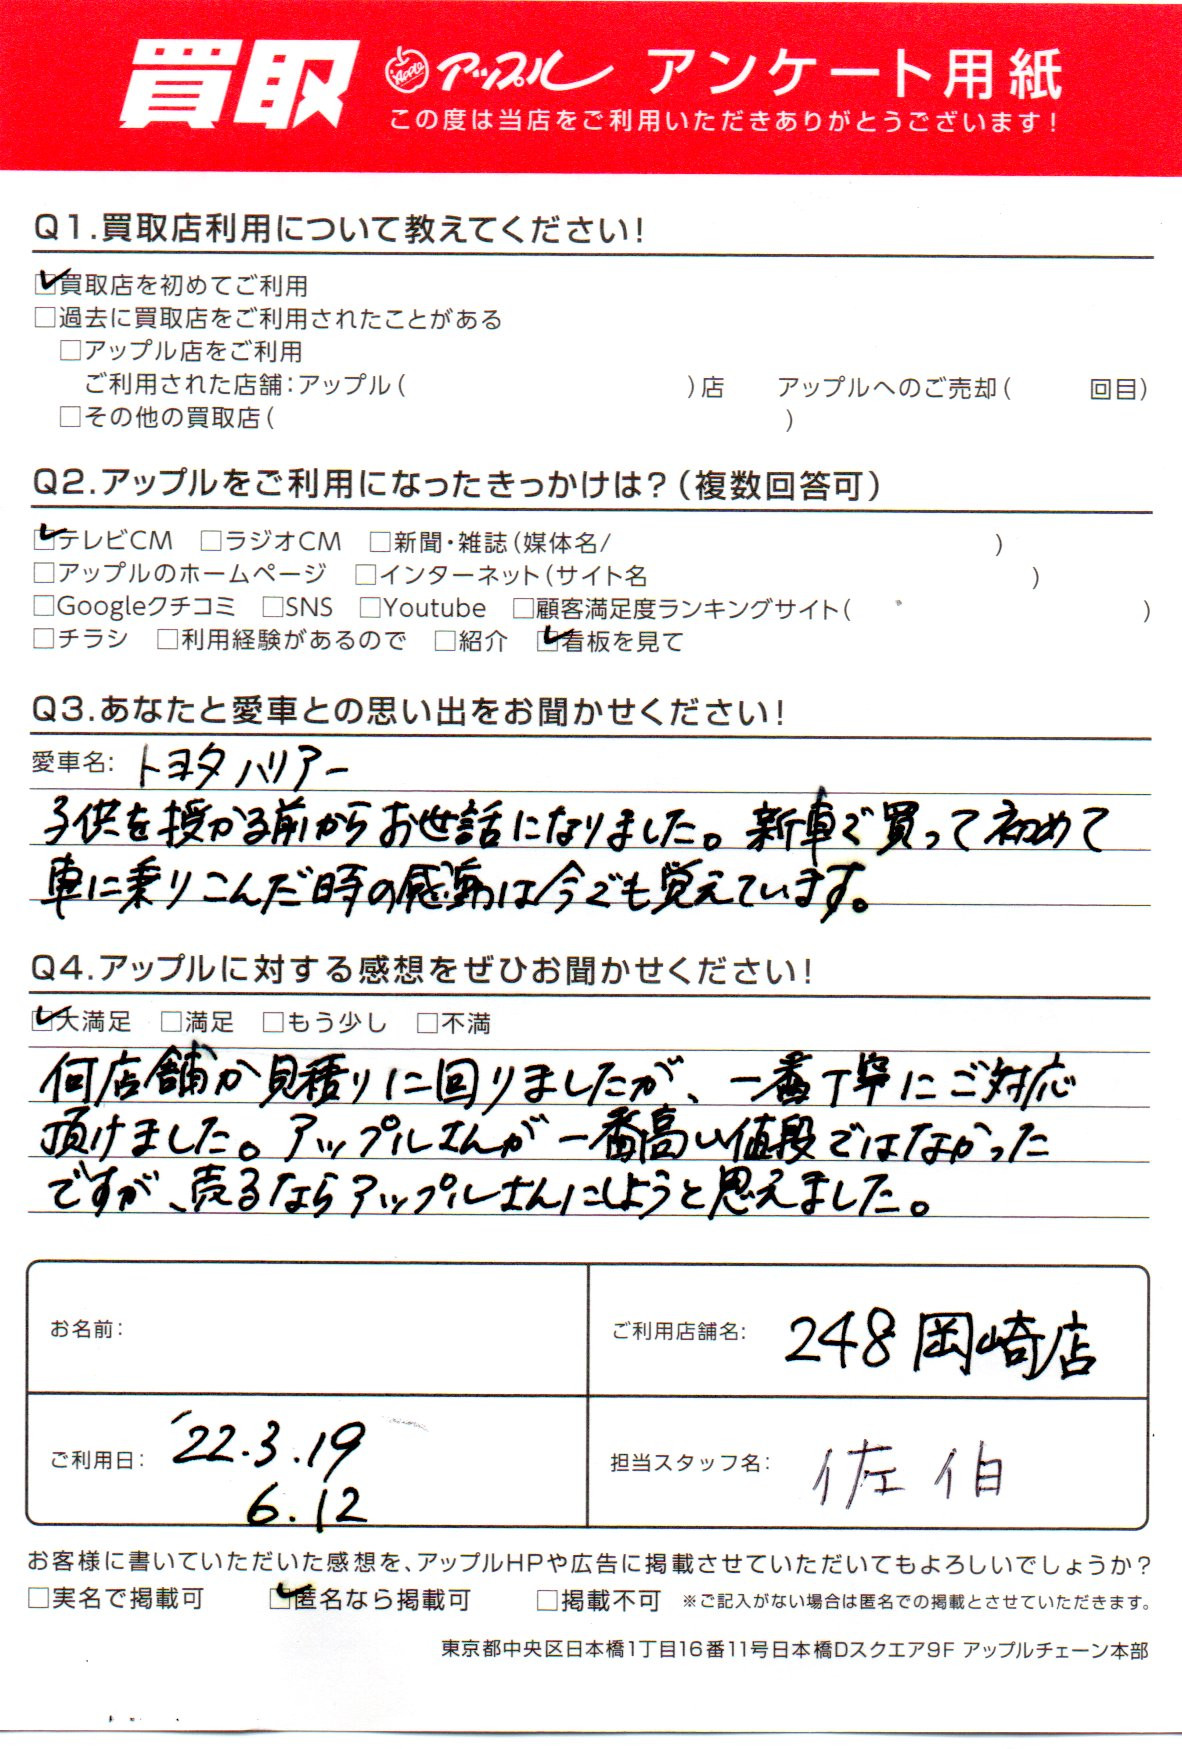 買取 Apple アップル アンケート用紙
この度は当店をご利用いただきありがとうございます!
Q1.買取店利用について教えてください!
☑買取店を初めてご利用
□過去に買取店をご利用されたことがある
□アップル店をご利用
ご利用された店舗:アップル( )店 アップルへのご売却( 回目)
□その他の買取店( )
Q2.アップルをご利用になったきっかけは?(複数回答可)
☑テレビCM □ラジオCM □新聞・雑誌(媒体名/ )
□アップルのホームページ □インターネット(サイト名 )
□Googleクチコミ □SNS □Youtube □顧客満足度ランキングサイト( )
□チラシ □利用経験があるので □紹介 ☑看板を見て
Q3.あなたと愛車との思い出をお聞かせください!
愛車名: トヨタ ハリアー
子供を授かる前からお世話になりました。新車で買って初めて
車に乗りこんだ時の感動は今でも覚えています。
Q4.アップルに対する感想をぜひお聞かせください!
☑大満足 □満足 □もう少し □不満
何店舗か見積りに回りましたが、一番丁寧にご対応
頂けました。アップルさんが一番高い値段ではなかった
ですが、売るならアップルさんにしようと思えました。
お名前:
ご利用店舗名: 248岡崎店
ご利用日: '22.3.19
6.12
担当スタッフ名: 佐伯
お客様に書いていただいた感想を、アップルHPや広告に掲載させていただいてもよろしいでしょうか?
□実名で掲載可 ☑匿名なら掲載可 □掲載不可 ※ご記入がない場合は匿名での掲載とさせていただきます。
東京都中央区日本橋1丁目16番11号日本橋Dスクエア9F アップルチェーン本部